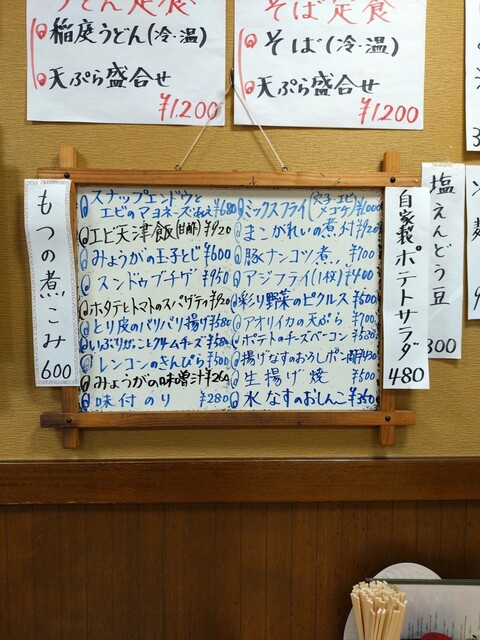 うどん定食
稲庭うどん(冷・温)
天ぷら盛合せ
¥1,200
そば定食
そば(冷・温)
天ぷら盛合せ
¥1,200
もつの煮こみ
600
スナップエンドウと
エビのマヨネーズ和え ¥680
エビ天津飯(甘酢) ¥920
みょうがの玉子とじ ¥600
スンドゥブチゲ ¥950
ホタテとトマトのスパゲティ ¥920
とり皮のパリパリ揚げ ¥580
いぶりがっことクリームチーズ
レンコンのきんぴら ¥500
みょうがの味噌汁 ¥260
味付のり ¥280
ミックスフライ(穴子・エビ・メゴチ) ¥1,000
まこがれいの煮付 ¥920
豚ナンコツ煮 ¥700
アジフライ(1枚) ¥400
彩り野菜のピクルス ¥500
アオリイカの天ぷら ¥700
ポテトのチーズベーコン
揚げなすのおろしポン酢
生揚げ焼 ¥500
水なすのおしんこ ¥350
自家製ポテトサラダ
480
塩えんどう豆
300